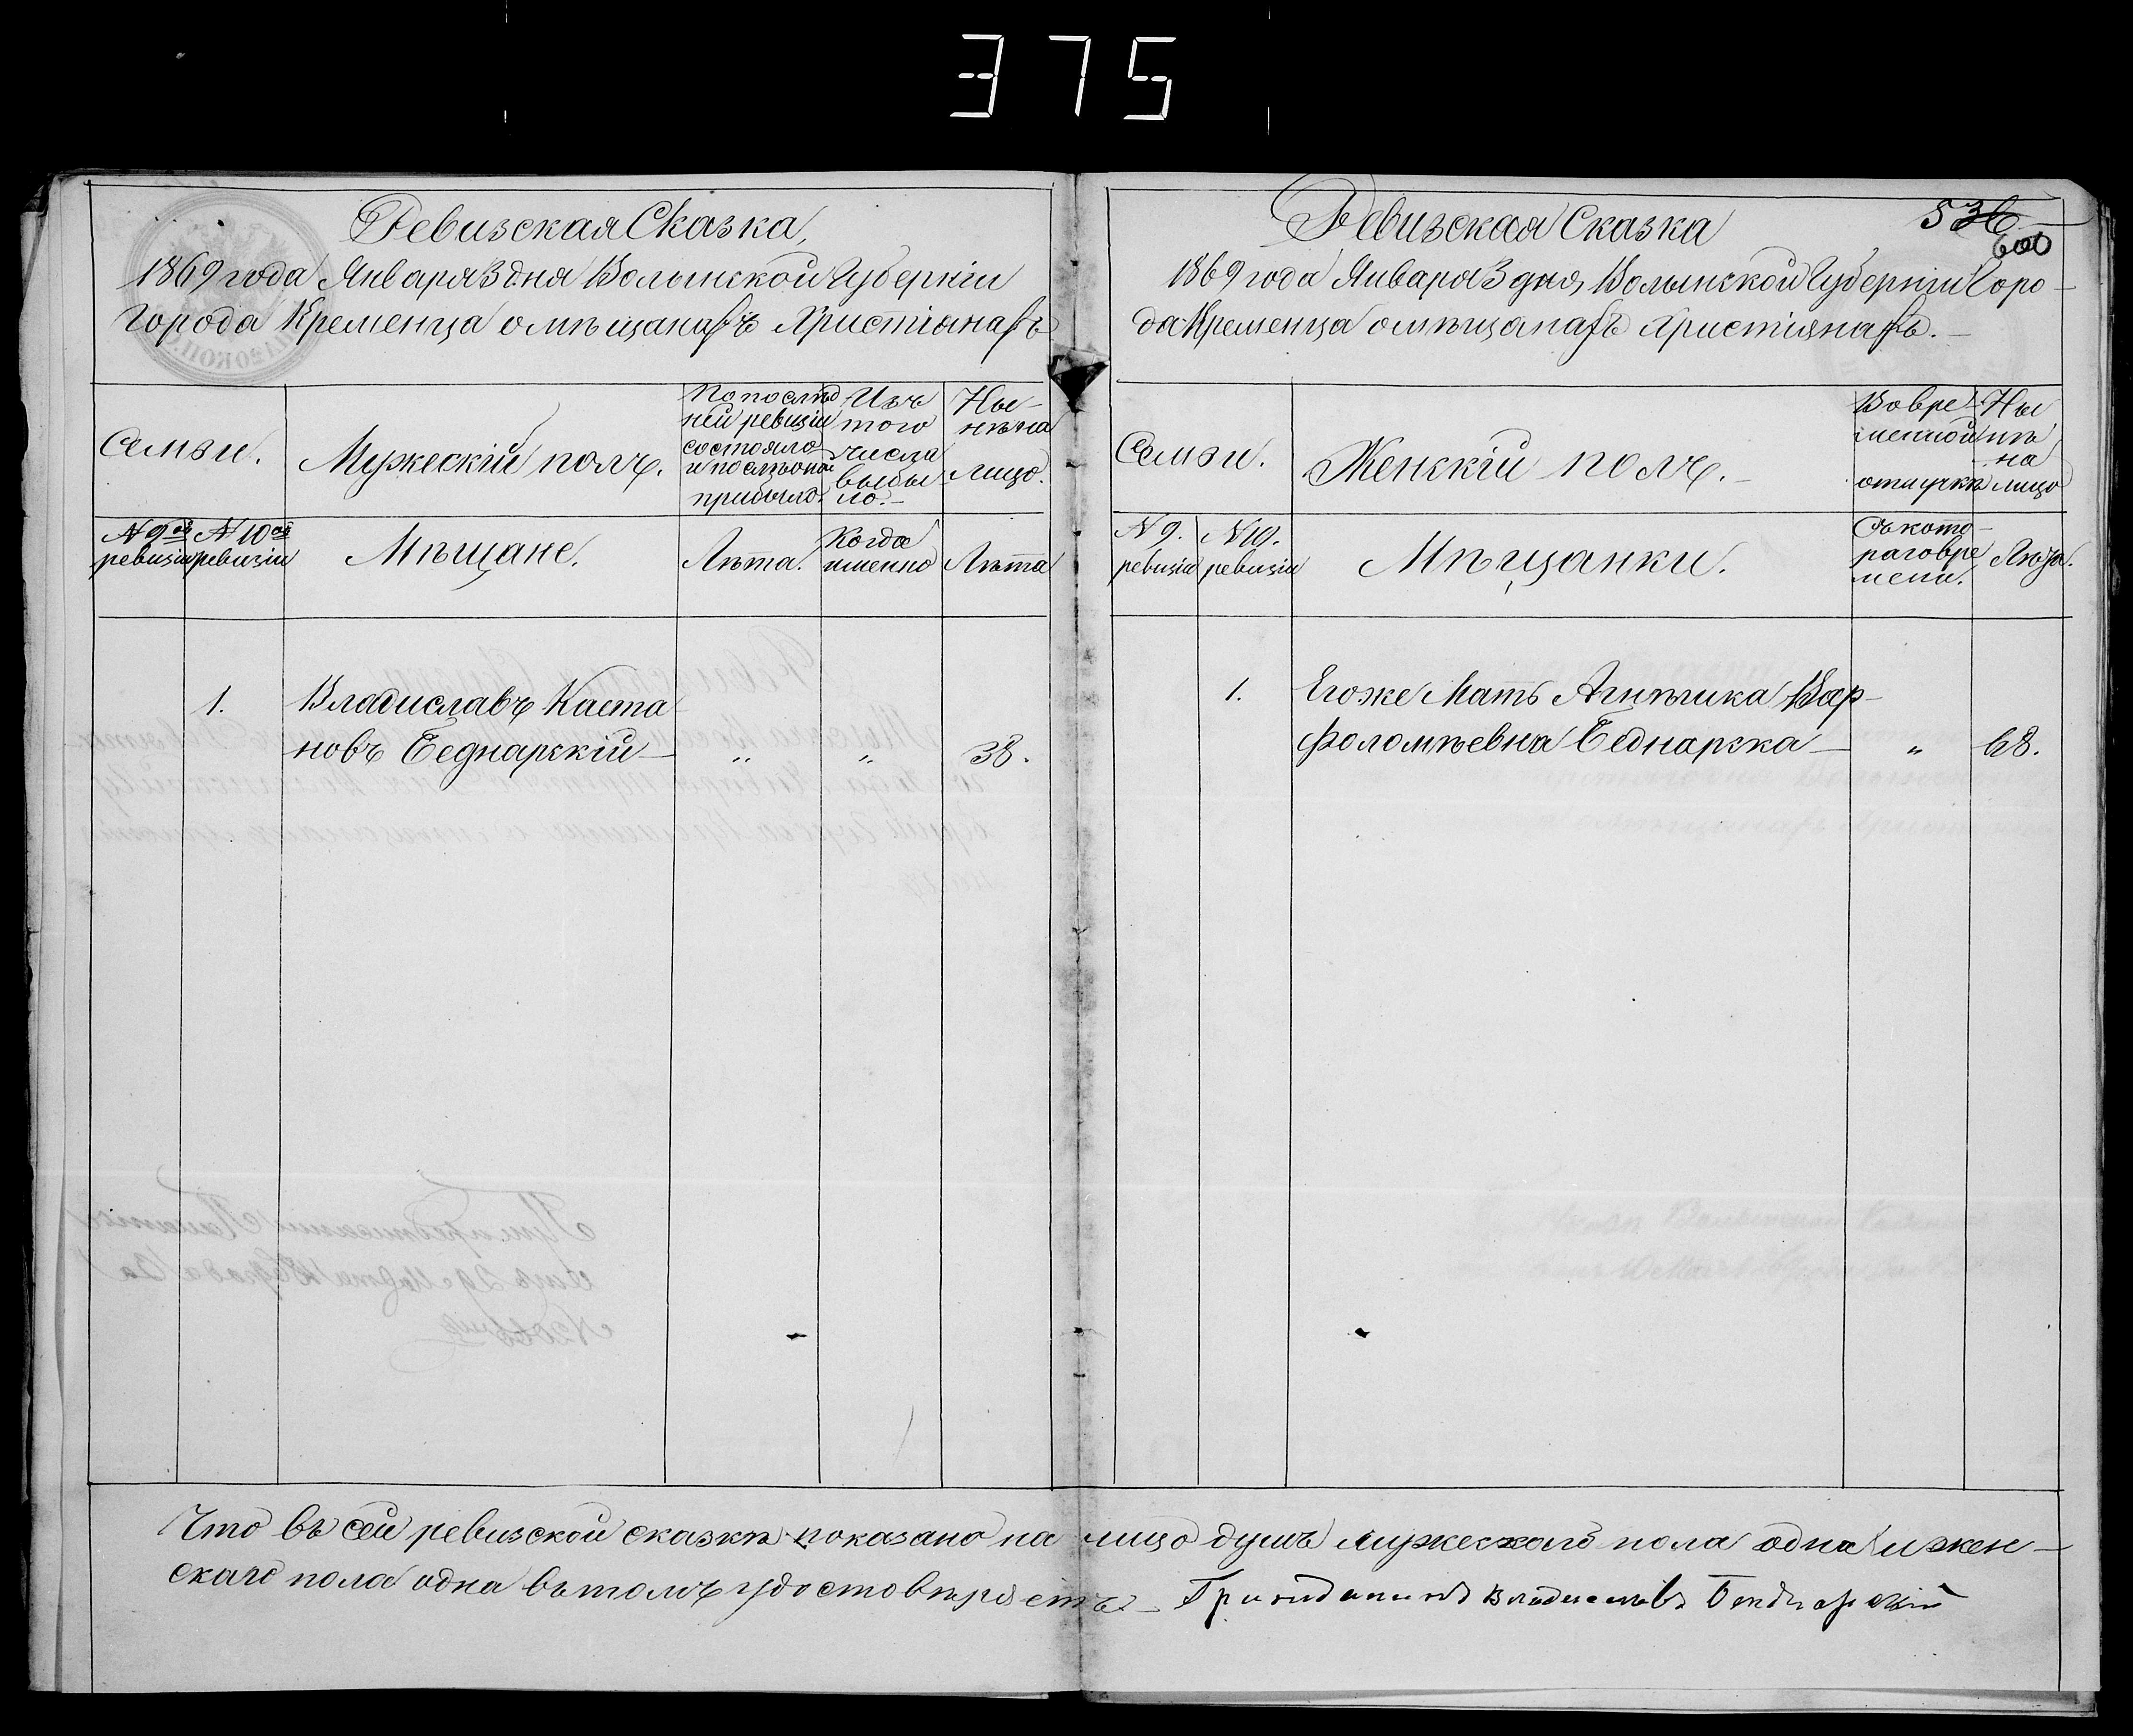 375
Ревизская Сказка,
1869 года Января 3 дня Волынской Губерніи
Города Кременца о мѣщанахъ Христіянахъ
Семьи.
Мужескій полъ.
По послѣд
ней ревизіи
состояло
и послѣ оной
прибыло.
Изъ
того
числа
выбы
ло.
Ны-
нѣ на
лицо.
№ 9ой
ревизіи
№ 10ой
ревизіи
Мѣщане.
Лѣта.
Когда
именно
Лѣта
1.
Владиславъ Каета
новъ Беднарскій
„
„
38.
Ревизская Сказка
536
600
1869 года Января 3 дня, Волынской Губерніи Горо-
да Кременца о мѣщанахъ Христіянахъ.
Семьи.
Женскій полъ.
Во вре-
менной
отлучкѣ
Ны
нѣ
на
лицо
№ 9.
ревизіи
№ 10.
ревизіи
Мѣщанки.
Съ кото-
раго вре
мени.
Лѣта.
1.
Его же Мать Агнѣшка Вар-
фоломѣевна Беднарска
„
68.
Что въ сей ревизской сказкѣ показано на лицо душъ мужескаго пола одна и жен-
скаго пола одна въ томъ удостовѣряетъ. Владиславъ Беднарскій